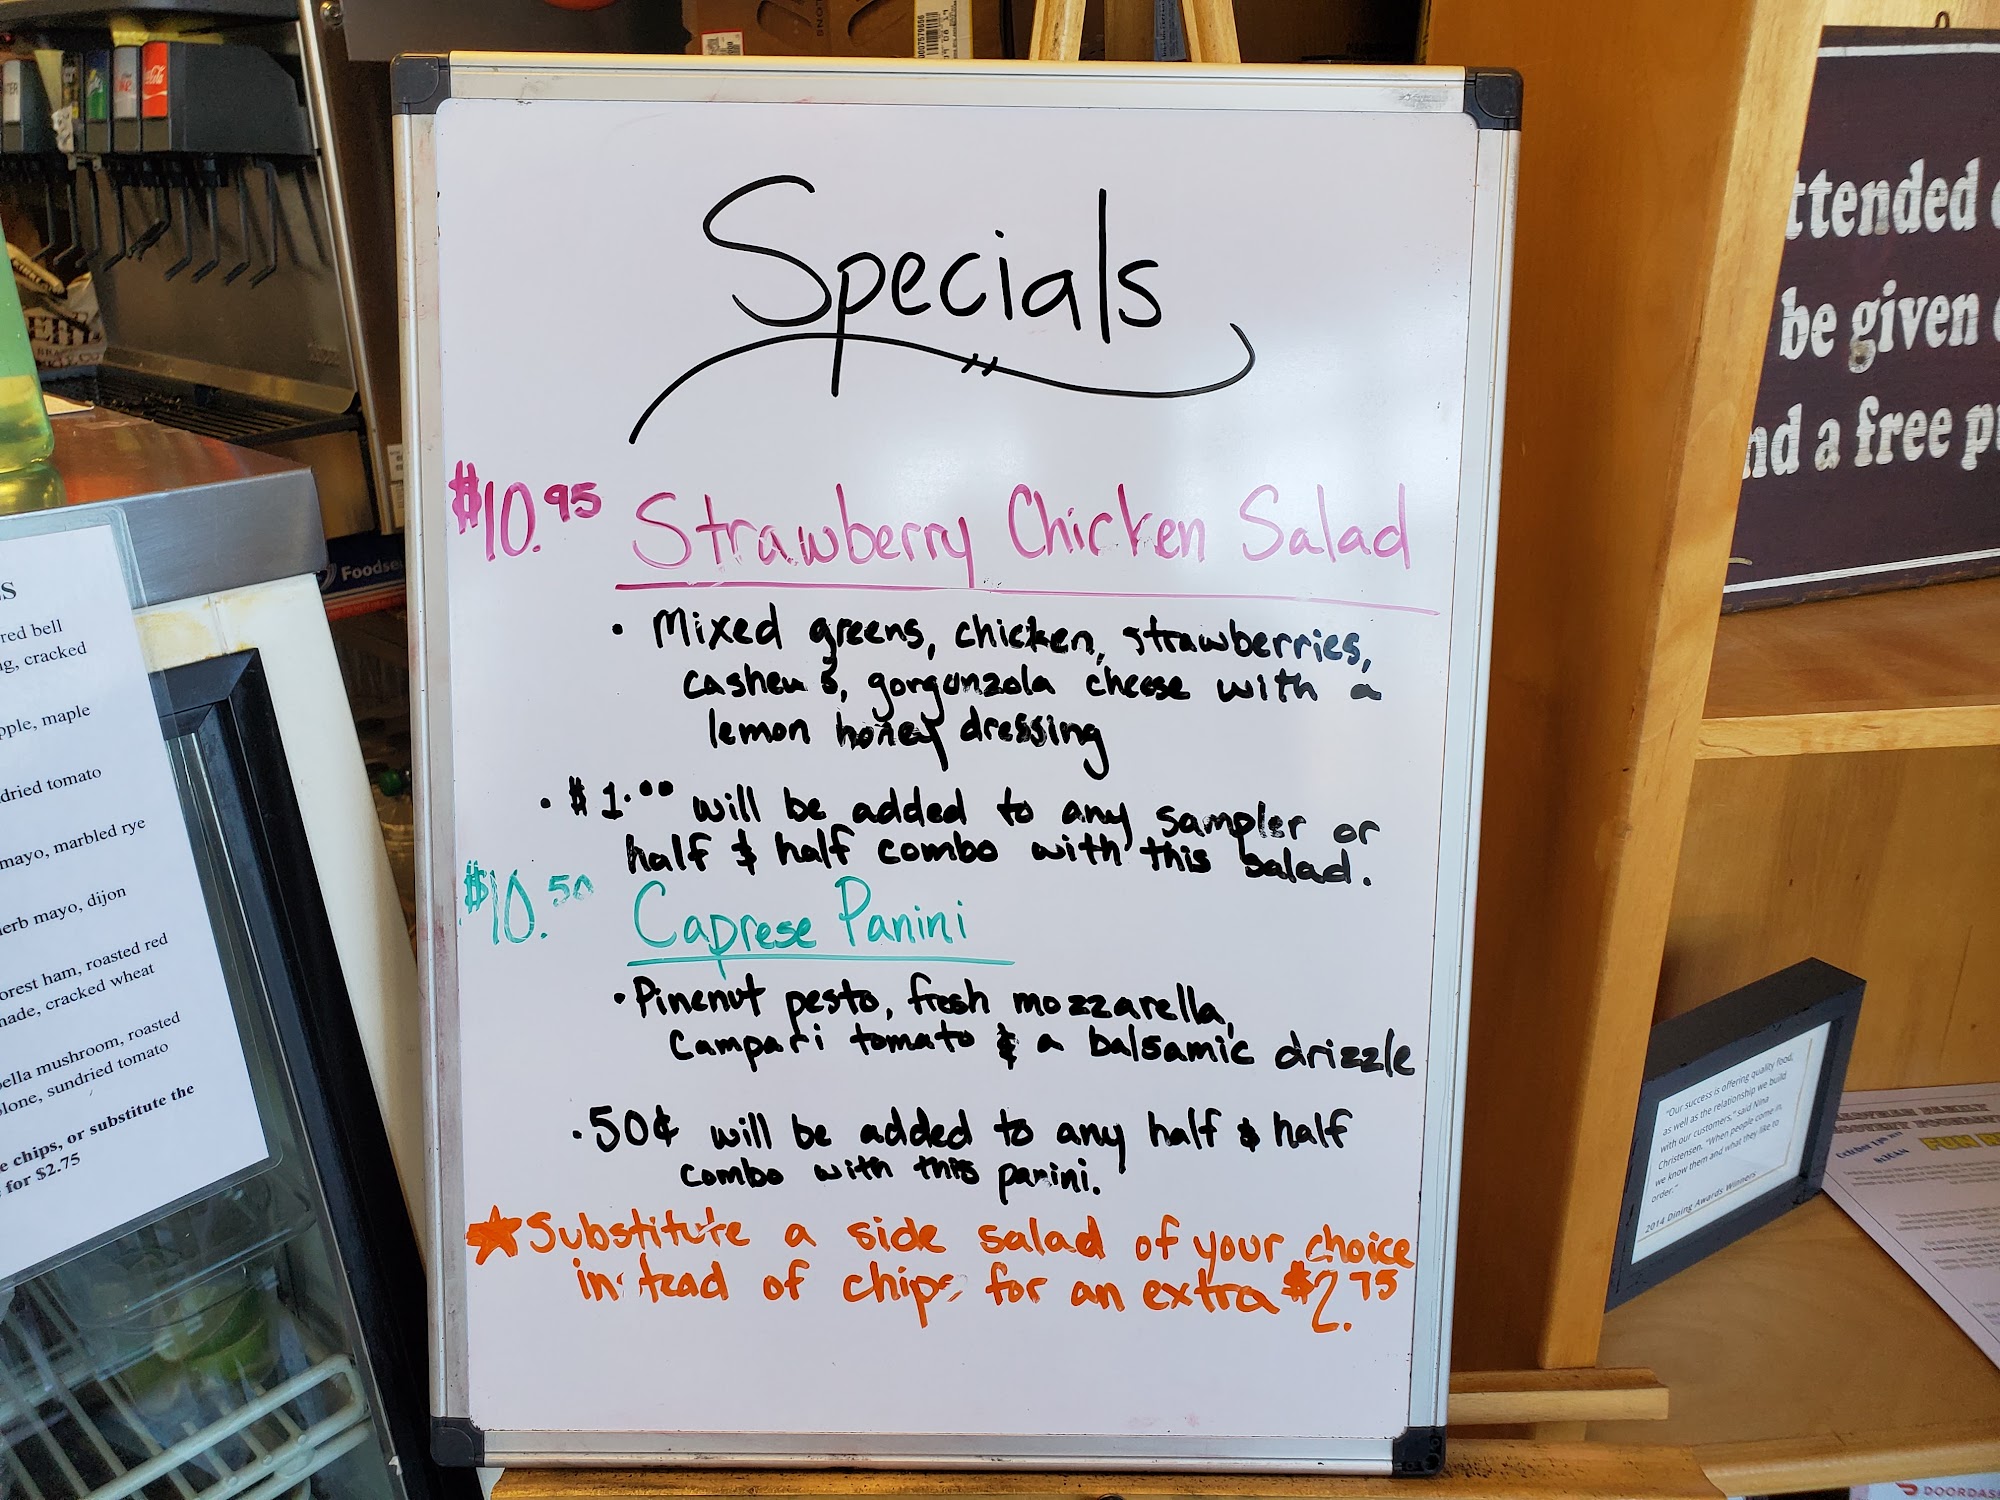 Specials
$10.95 Strawberry Chicken Salad
• Mixed greens, chicken, strawberries,
cashews, gorgonzola cheese with a
lemon honey dressing
• $1.00 will be added to any sampler or
half & half combo with this salad.
$10.50 Caprese Panini
• Pinenut pesto, fresh mozzarella,
Campari tomato & a balsamic drizzle
• 50¢ will be added to any half & half
combo with this panini.
★ Substitute a side salad of your choice
instead of chips for an extra $2.75
Coca-Cola
Foodse
red bell
cracked
pple, maple
dried tomato
mayo, marbled rye
erb mayo, dijon
orest ham, roasted red
made, cracked wheat
ella mushroom, roasted
lone, sundried tomato
e chips, or substitute the
for $2.75
ttended
be given
nd a free p
"Our success is offering quality food,
as well as the relationship we build
with our customers," said Nina
Christensen. "When people come in,
we know them and what they like to
order."
2014 Dining Awards Winners
FUN R
DOORDAS